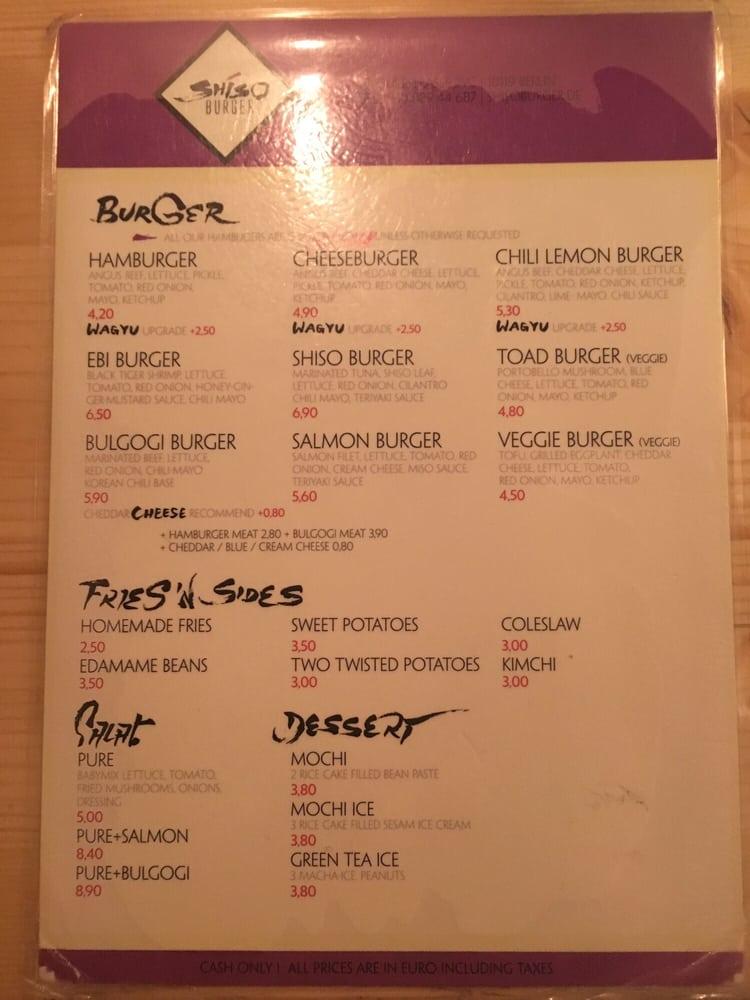 SHISO
BURGER
10119 BERLIN
BURGER
ALL OUR HAMBUGERS ARE
UNLESS OTHERWISE REQUESTED
HAMBURGER
ANGUS BEEF, LETTUCE, PICKLE,
TOMATO, RED ONION,
MAYO, KETCHUP
4,20
WAGYU UPGRADE +2,50
CHEESEBURGER
ANGUS BEEF, CHEDDAR CHEESE, LETTUCE,
PICKLE, TOMATO, RED ONION, MAYO,
KETCHUP
4,90
WAGYU UPGRADE +2,50
CHILI LEMON BURGER
ANGUS BEEF, CHEDDAR CHEESE, LETTUCE,
PICKLE, TOMATO, RED ONION, KETCHUP,
CILANTRO, LIME- MAYO, CHILI SAUCE
5,30
WAGYU UPGRADE +2,50
EBI BURGER
BLACK TIGER SHRIMP, LETTUCE,
TOMATO, RED ONION, HONEY-GIN-
GER-MUSTARD SAUCE, CHILI MAYO
6,50
SHISO BURGER
MARINATED TUNA, SHISO LEAF,
LETTUCE, RED ONION, CILANTRO
CHILI MAYO, TERIYAKI SAUCE
6,90
TOAD BURGER (VEGGIE)
PORTOBELLO MUSHROOM, BLUE
CHEESE, LETTUCE, TOMATO, RED
ONION, MAYO, KETCHUP
4,80
BULGOGI BURGER
MARINATED BEEF, LETTUCE,
RED ONION, CHILI-MAYO
KOREAN CHILI BASE
5,90
CHEDDAR CHEESE RECOMMEND +0,80
SALMON BURGER
SALMON FILET, LETTUCE, TOMATO, RED
ONION, CREAM CHEESE, MISO SAUCE,
TERIYAKI SAUCE
5,60
VEGGIE BURGER (VEGGIE)
TOFU, GRILLED EGGPLANT, CHEDDAR
CHEESE, LETTUCE, TOMATO,
RED ONION, MAYO, KETCHUP
4,50
+ HAMBURGER MEAT 2,80 + BULGOGI MEAT 3,90
+ CHEDDAR / BLUE / CREAM CHEESE 0,80
FRIES 'N SIDES
HOMEMADE FRIES
2,50
SWEET POTATOES
3,50
COLESLAW
3,00
EDAMAME BEANS
3,50
TWO TWISTED POTATOES
3,00
KIMCHI
3,00
SALAT
PURE
BABYMIX LETTUCE, TOMATO,
FRIED MUSHROOMS, ONIONS,
DRESSING
5,00
PURE+SALMON
8,40
PURE+BULGOGI
8,90
DESSERT
MOCHI
2 RICE CAKE FILLED BEAN PASTE
3,80
MOCHI ICE
3 RICE CAKE FILLED SESAM ICE CREAM
3,80
GREEN TEA ICE
3 MACHA-ICE, PEANUTS
3,80
CASH ONLY ! ALL PRICES ARE IN EURO INCLUDING TAXES